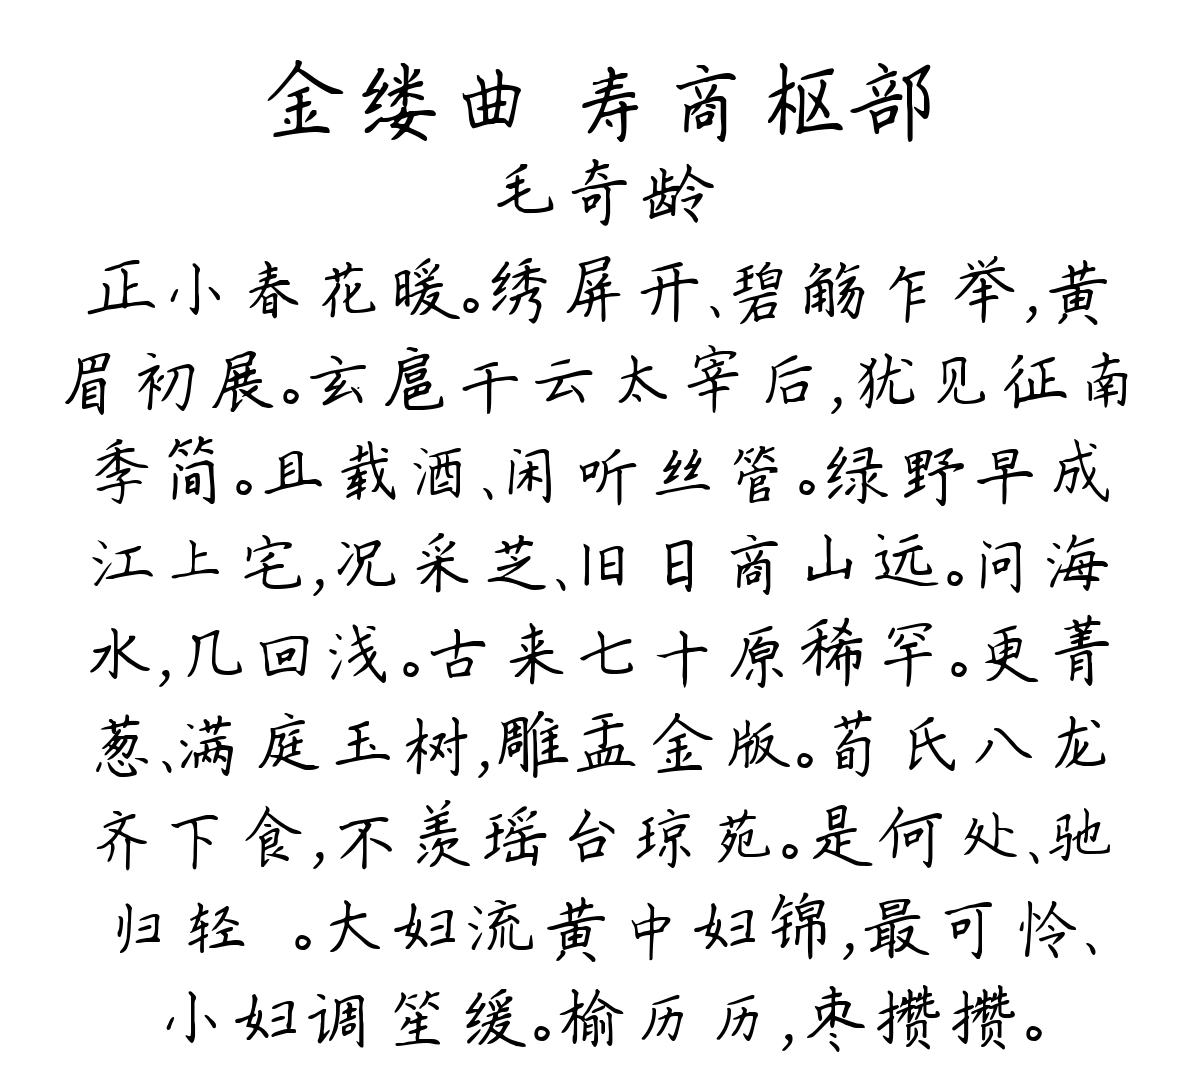 金缕曲 寿商枢部
毛奇龄
正小春花暖。绣屏开、碧觞乍举,黄
眉初展。玄扈干云太宰后,犹见征南
季简。且载酒、闲听丝管。绿野早成
江上宅,况采芝、旧日商山远。问海
水,几回浅。古来七十原稀罕。更菁
葱、满庭玉树,雕盂金版。荀氏八龙
齐下食,不羡瑶台琼苑。是何处、驰
归轻 。大妇流黄中妇锦,最可怜、
小妇调笙缓。榆历历,枣攒攒。